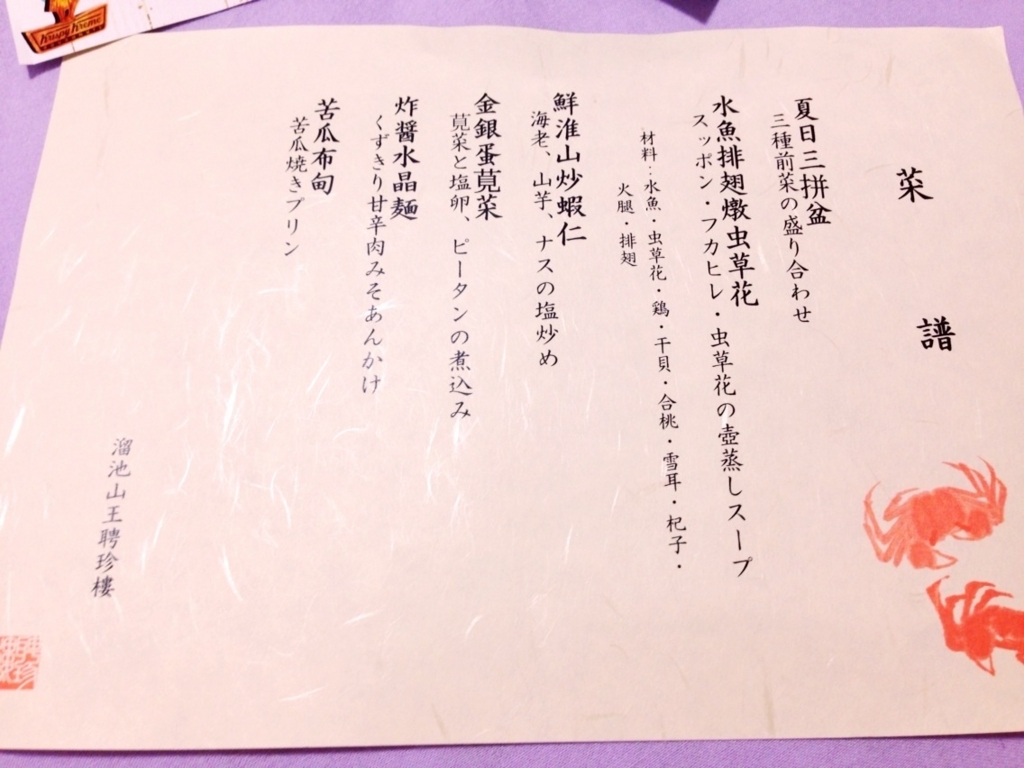 菜譜
夏日三拼盆
三種前菜の盛り合わせ
水魚排翅燉虫草花
スッポン・フカヒレ・虫草花の壺蒸しスープ
材料：水魚・虫草花・鶏・干貝・合桃・雪耳・杞子・
火腿・排翅
鮮淮山炒蝦仁
海老、山芋、ナスの塩炒め
金銀蛋莧菜
莧菜と塩卵、ピータンの煮込み
炸醬水晶麵
くずきり甘辛肉みそあんかけ
苦瓜布甸
苦瓜焼きプリン
溜池山王聘珍樓
Krispy Kreme